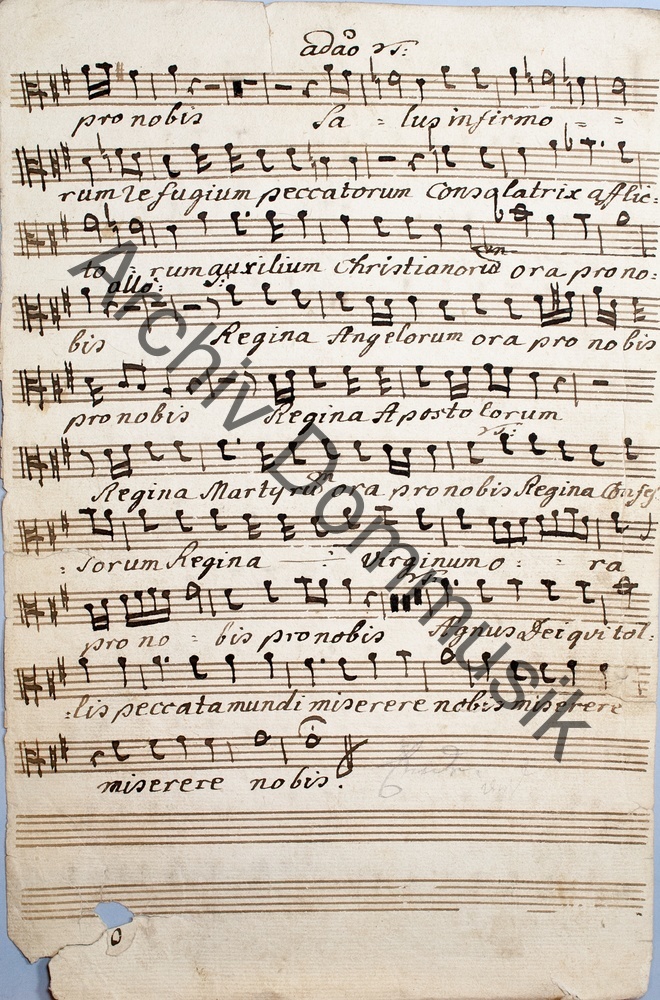 adão
pro nobis Sa - lus infirmo - -
rum Refugium peccatorum Consolatrix afflic:
to - rum auxilium Christianorum ora pro no:
allo:
bis Regina Angelorum ora pro nobis
pro nobis Regina Apostolorum
Regina Martyrum ora pro nobis Regina Confes
: sorum Regina virginum o : : ra
pro no - bis pro nobis Agnus Dei qui tol:
:lis peccata mundi miserere nobis miserere
miserere nobis.
Archiv Dommusik